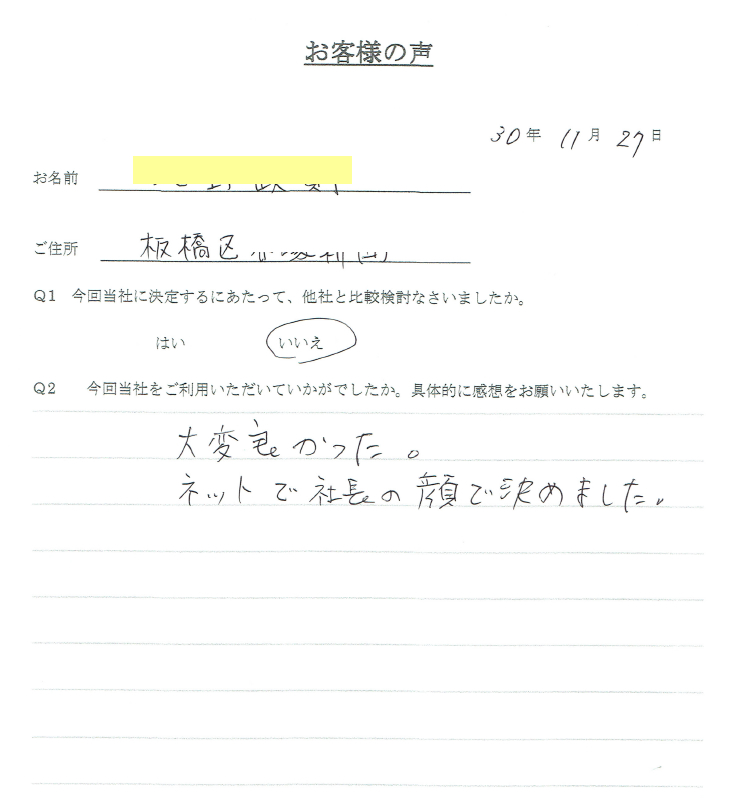 お客様の声
30年 11月 27日
お名前
ご住所 板橋区
Q1 今回当社に決定するにあたって、他社と比較検討なさいましたか。
はい いいえ
Q2 今回当社をご利用いただいていかがでしたか。具体的に感想をお願いいたします。
大変良かった。
ネットで社長の顔で決めました。